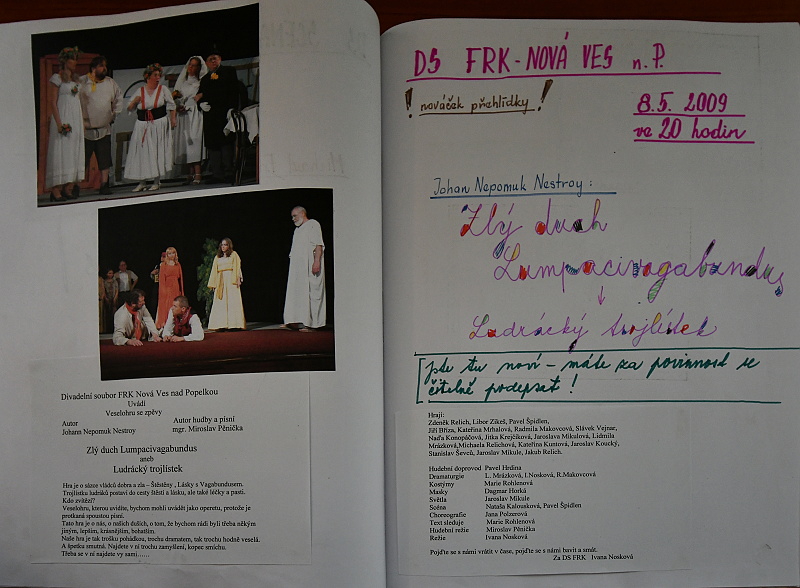 Divadelní soubor FRK Nová Ves nad Popelkou
Uvádí
Veselohru se zpěvy
Autor
Johann Nepomuk Nestroy
Autor hudby a písní
mgr. Miroslav Pěnička
Zlý duch Lumpacivagabundus
aneb
Ludrácký trojlístek
Hra je o sázce vládců dobra a zla – Štěstěny , Lásky s Vagabundusem.
Trojlístku ludráků postaví do cesty štěstí a lásku, ale také léčky a pasti.
Kdo zvítězí?
Veselohru, kterou uvidíte, bychom mohli uvádět jako operetu, protože je
protkaná spoustou písní.
Tato hra je o nás, o našich duších, o tom, že bychom rádi byli třeba někým
jiným, lepším, krásnějším, bohatším.
Naše hra je tak trošku pohádkou, trochu dramatem, tak trochu hodně veselá.
A špetku smutná. Najdete v ní trochu zamyšlení, kopec smíchu.
Třeba se v ní najdete vy sami......
DS FRK - NOVÁ VES n. P.
! nováček přehlídky !
8.5. 2009
ve 20 hodin
Johan Nepomuk Nestroy :
Zlý duch
Lumpacivagabundus
↓
Ludrácký trojlístek
Jste tu noví – máte za povinnost se
čitelně podepsat !
Hrají:
Zdeněk Relich, Libor Zikeš, Pavel Špidlen,
Jiří Bříza, Kateřina Mrhalová, Radmila Makovcová, Slávek Vejnar,
Naďa Konopáčová, Jitka Krejčíková, Jaroslava Mikulová, Lidmila
Mrázková,Michaela Relichová, Kateřina Kuntová, Jaroslav Koucký,
Stanislav Ševců, Jaroslav Mikule, Jakub Relich.
Hudební doprovod Pavel Hrdina
Dramaturgie L. Mrázková, I.Nosková, R.Makovcová
Kostýmy Marie Rohlenová
Masky Dagmar Horká
Světla Jaroslav Mikule
Scéna Nataša Kalousková, Pavel Špidlen
Choreografie Jana Polzerová
Text sleduje Marie Rohlenová
Hudební režie Miroslav Pěnička
Režie Ivana Nosková
Pojďte se s námi vrátit v čase, pojďte se s námi bavit a smát.
Za DS FRK Ivana Nosková